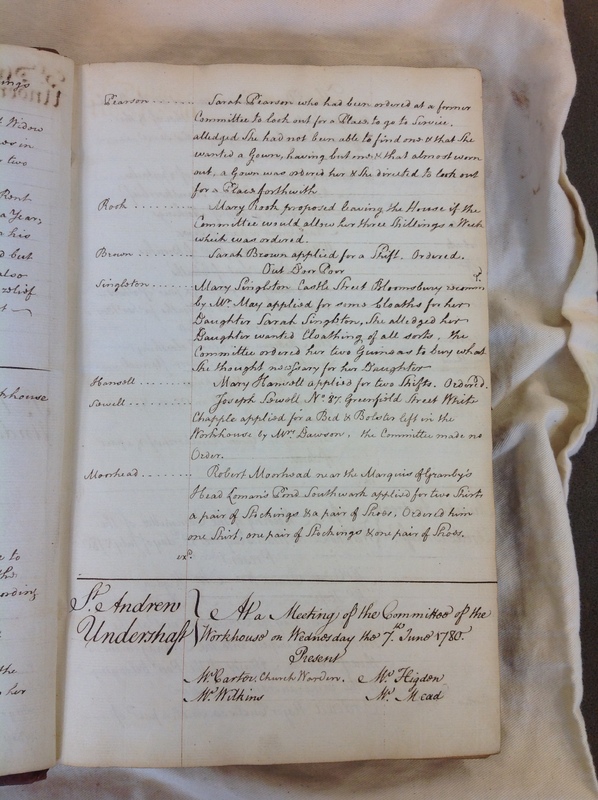 Pearson ....... Sarah Pearson who had been ordered at a former
Committee to look out for a Place to go to Service.
alledged She had not been able to find one & that She
wanted a Gown, having but one & that almost worn
out, a Gown was ordered her & She directed to look out
for a Place forthwith
Rook ........ Mary Rook proposed leaving the House if the
Committee would allow her three Shillings a Week
which was ordered.
Brown ........ Sarah Brown applied for a Shift. Ordered.
Out Door Poor
Singleton ...... Mary Singleton Castle Street Bloomsbury recomm.d
by Mr. May applied for some Cloaths for her
Daughter Sarah Singleton, She alledged her
Daughter wanted Cloathing of all sorts. the
Committee ordered her two Guineas to buy what
She thought necessary for her Daughter
Hansell ....... Mary Hansell applied for two Shifts. Order'd.
Sewell ........ Joseph Sewell No. 87. Greenfield Street White
Chapple applied for a Bed & Bolster left in the
Workhouse by Mrs. Dawson. the Committee made no
Order.
Moorhead ....... Robert Moorhead near the Marquis of Granby's
Head Lomans Pond Southwark applied for two Shirts
a pair of Stockings & a pair of Shoes. Ordered him
one Shirt, one pair of Stockings & one pair of Shoes.
exd.
St. Andrew
Undershaft
At a Meeting of the Committee of the
Workhouse on Wednesday the 7.th June 1780.
Present
Mr. Carter, Church Warden. Mr. Higdon
Mr. Wilkins Mr. Mead
Widow
or in
two
Rent
a Year,
his
d but
also
relief
khouse
e to
the
ording
the
her